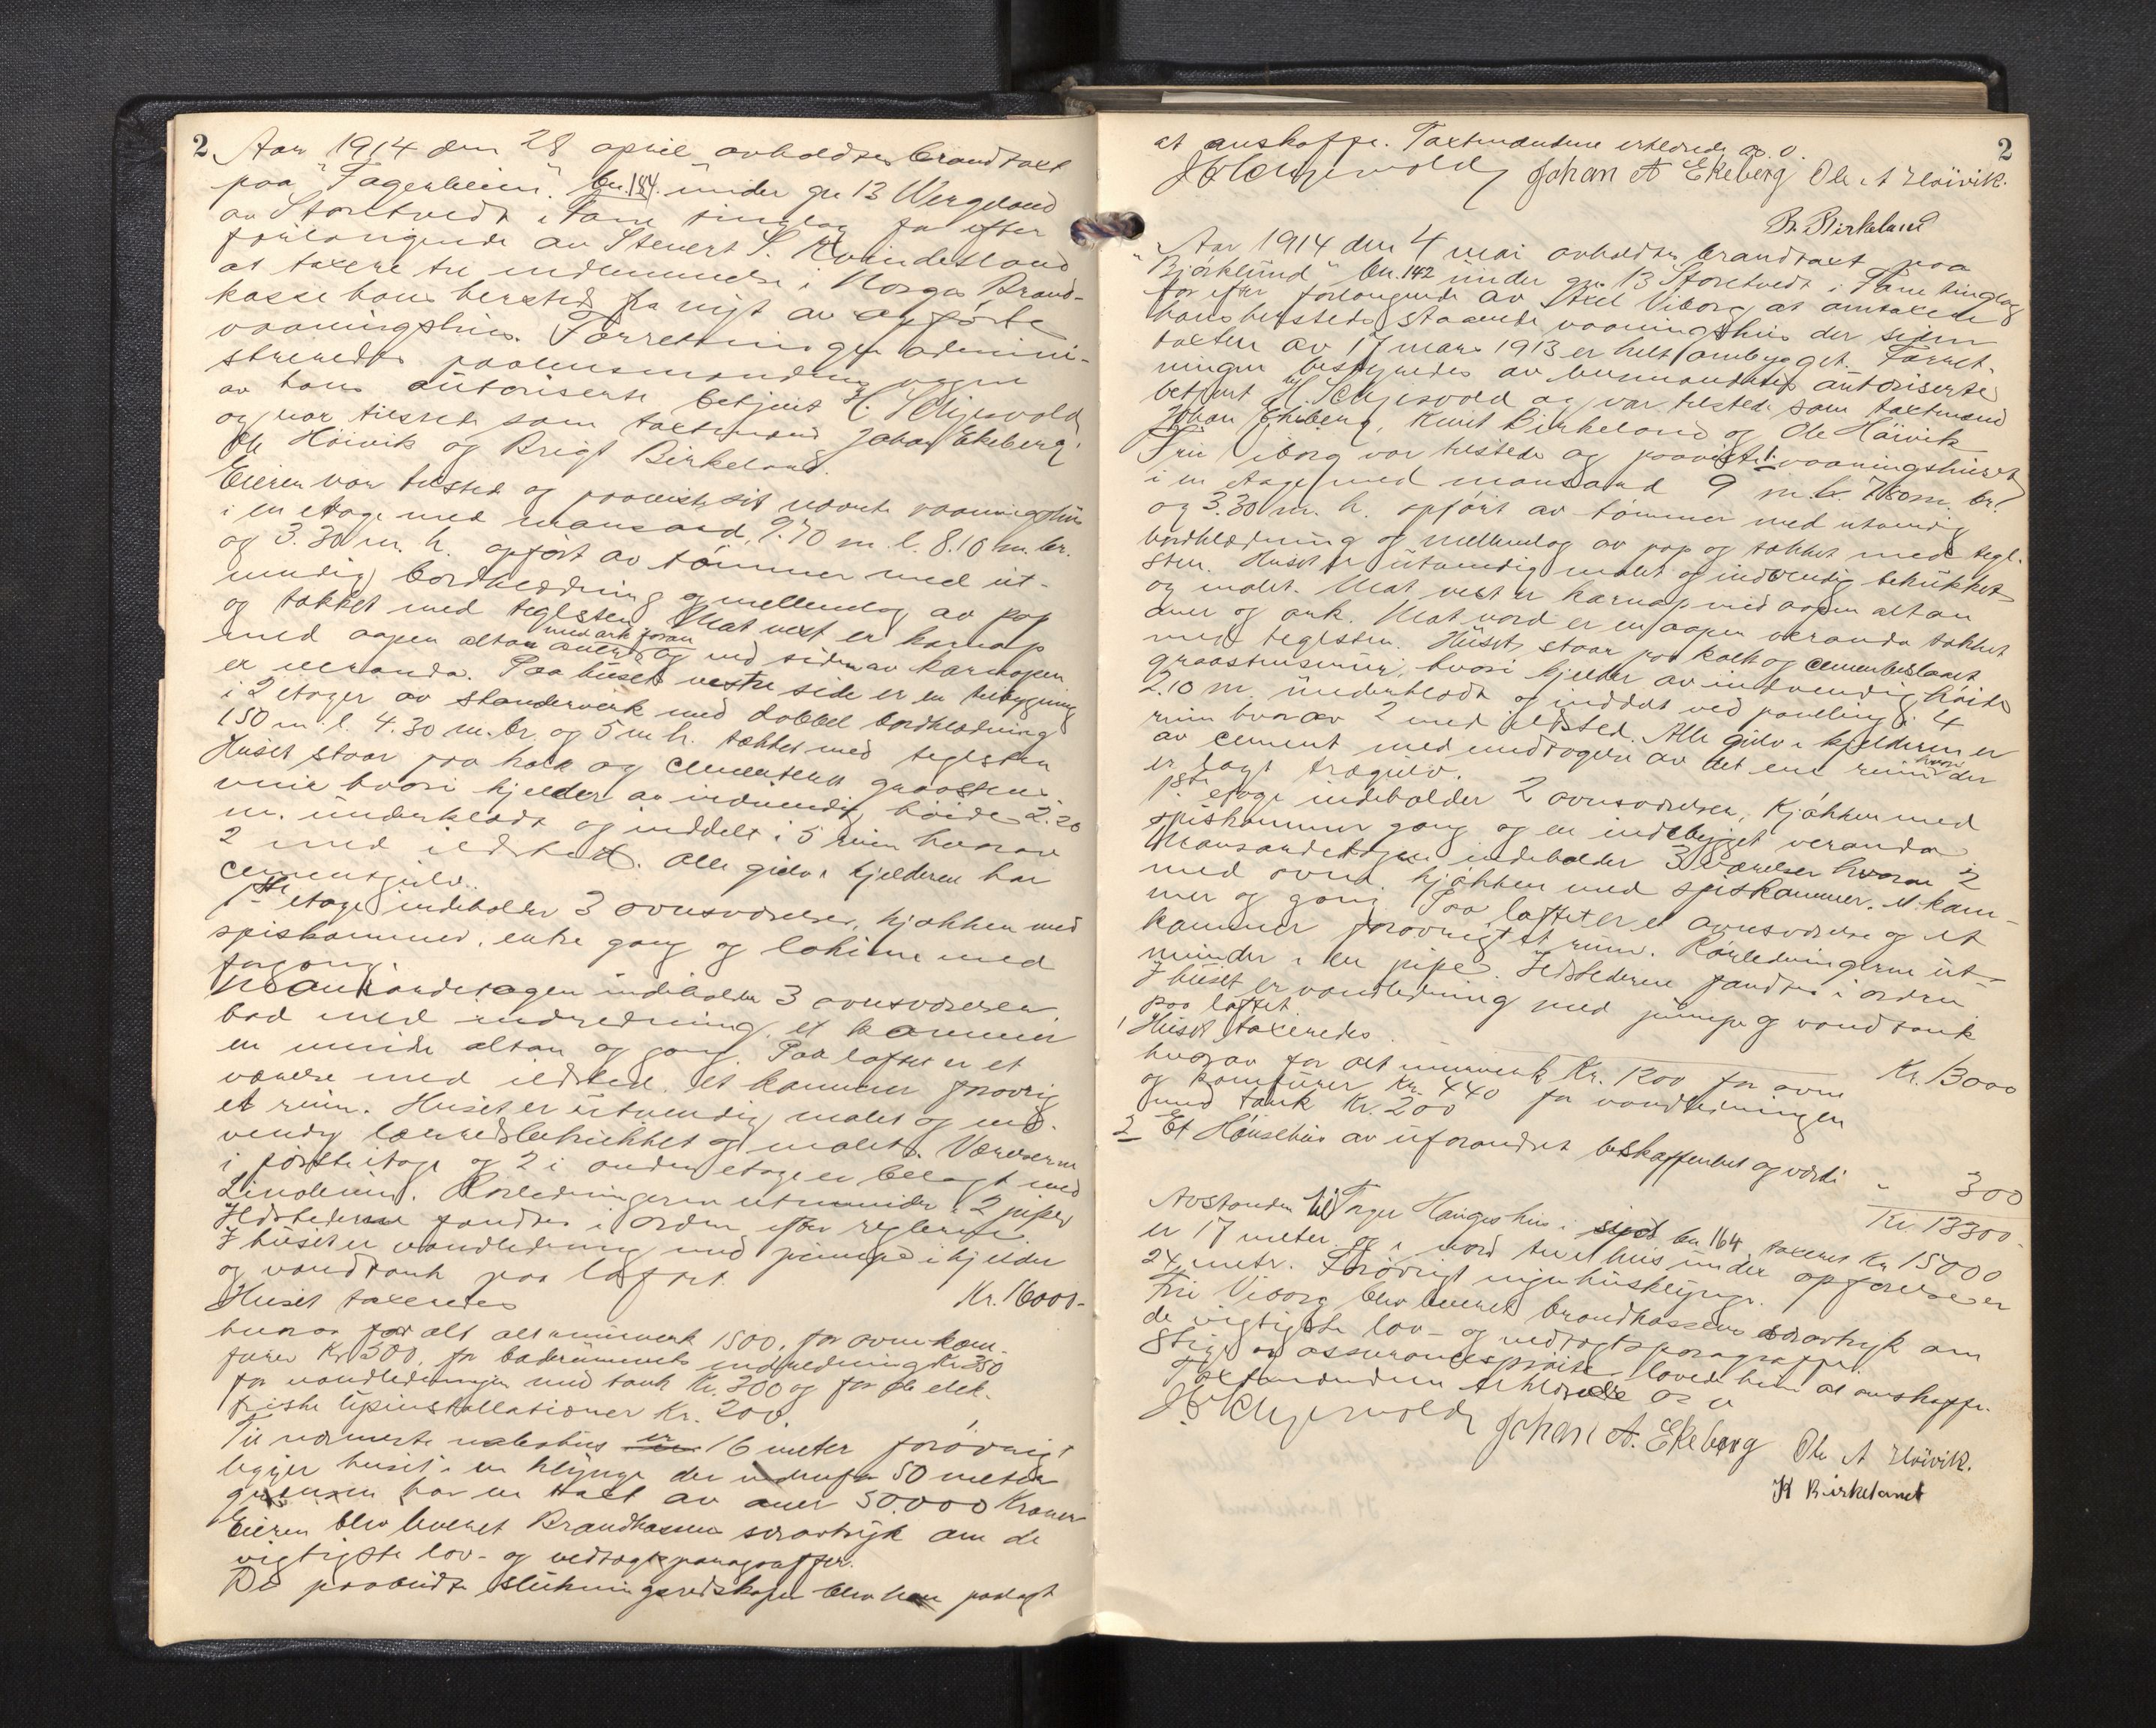 2
Aar 1914 den 28 april avholdtes brandtaxt
paa "Fagerheim" bn. 184 under gn 13 Wergeland
av Storetvedt i Fane tinglag for efter
forlangende av Stenert S. Kvindesland
at taxere til indlemmelse i Norges Brand-
kasse hans hersteds fra nyt av opførte
vaaningshus. Forretningen admini-
stredes paa lensmandens vegne
av hans autoriserte betjent H. Schjesvold
og var tilstede som taxtmænd Johan Ekeberg,
Ole Höivik og Brigt Birkeland.
Eieren var tilstede og paaviste sit nævnte vaaningshus
i en etage med mansard, 9.70 m. l. 8.10 m. br.
og 3.30 m. h. opført av tömmer med ut-
vendig bordklædning og mellemlag av pap
og tækket med teglsten. Mot vest er karnap
med aapen altan over med ark foran og ved siden av karnappen
er veranda. Paa husets vestre side er en tilbygning
i 2 etager av stenderverk med dobbel bordklædning
1.50 m. l. 4.30 m. br. og 5 m h. tækket med teglsten
Huset staar paa kalk og cementslaat graastens-
mur hvori kjelder av indvendig höide 2.20
m. underklædt og inddelt i 5 rum hvorav
2 med ildsted. Alle gulv i kjelderen har
cementgulv.
1ste etage indeholder 3 ovnsværelser, kjøkken med
spiskammer, entre gang og lokum med
forgang.
Mansardetagen indeholder 3 ovnsværelser,
bad med indredning, et kammer
en mindre altan og gang. Paa loftet er et
værelse med ildsted, et kammer forøvrig
et rum. Huset er utvendig malet og ind-
vendig lærredsbetrukket og malet. Værelserne
i første etage og 2 i anden etage er belagt med
Linoleum. Rørledningerne utmunder i 2 piper
Ildstederne fandtes i orden efter reglerne
I huset er vandledning med pumpe i kjelder
og vandtank paa loftet.
Huset taxeredes Kr. 16000-
hvorav for alt alt murverk 1500, for ovne kom-
furer Kr 500, for baderummets indredning Kr. 350
for vandledningen med tank Kr. 300 og for de elek-
triske lysinstallationer Kr. 200.
Til nærmeste nabohus er 16 meter forövrigt
ligger huset i en klynge der indenfor 50 meter
grænsen har en taxt av over 50.000 Kroner
Eieren blev leveret Brandkassens særavtryk om de
vigtigste lov- og vedtægtsparagraffer.
De paabudte slukningsredskaper blev han paalagt
2
at anskaffe. Taxtmændene erklærede os. v.
H Schjesvold Johan A Ekeberg Ole A Höivik.
B. Birkeland
Aar 1914 den 4 mai avholdtes brandtaxt paa
"Björklund" bn. 142 under gn. 13 Storetvedt i Fane tinglag
for efter forlangende av Axel Viborg at omtaxere
hans hersteds staaende vaaningshus der siden
taxten av 17 mars 1913 er helt ombygget. Forret-
ningen bestyredes av lensmandens autoriserte
betjent H. Schjesvold og var tilstede som taxtmænd
Johan Ekeberg, Knut Birkeland og Ole Höivik
Fru Viborg var tilstede og paaviste: 1. vaaningshuset
i en etage med mansard 9 m. l. 7.80 m. br.
og 3.30 m. h. opført av tömmer med utvendig
bordklædning og mellemlag av pap og tækket med tegl-
sten. Huset er utvendig malet og indvendig betrukket
og malet. Mot vest er karnap med aapen altan
over og ark. Mot nord er en aapen veranda tækket
med teglsten. Huset staar paa kalk og cementslaaet
graastensmur, hvori kjelder av indvendig höide
2.10 m. underklædt og inddelt ved paneling i 4
rum hvorav 2 med ildsted. Alle gulv i kjelderen er
av cement med undtagelse av det ene rum hvori der
er lagt trægulv.
1ste etage indeholder 2 ovnsværelser, Kjökken med
spiskammer gang og en indebygget veranda
Mansardetagen indeholder 3 værelser hvorav 2
med ovne. kjökken med spiskammer, et kam-
mer og gang. Paa loftet er et ovnsværelse og et
kammer forøvrigt et rum. Rørledningerne ut-
munder i en pipe. Ildstederne fandtes i orden
I huset er vandledning med pumpe og vandtank
paa loftet.
1 Huset taxeredes Kr. 13000
hvorav for alt murverk Kr. 1200 for ovne
og komfurer Kr. 440 for vandledningen
med tank Kr. 200
2 Et Hönsehus av uforandret beskaffenhet og værdi " 300
Kr. 13300-
Avstanden til Torger Hauges hus i syd bn 164, taxeret Kr 15000
er 17 meter og i nord til et hus under opførelse er
24 meter. Forövrigt ingen husklynge.
Fru Viborg blev leveret brandkassens særavtryk om
de vigtigste lov- og vedtægtsparagraffer.
Stige og assurancesprøite lovede hun at anskaffe.
Taxtmændene erklærede os v
H Schjesvold Johan A. Ekeberg Ole A Höivik.
K Birkeland